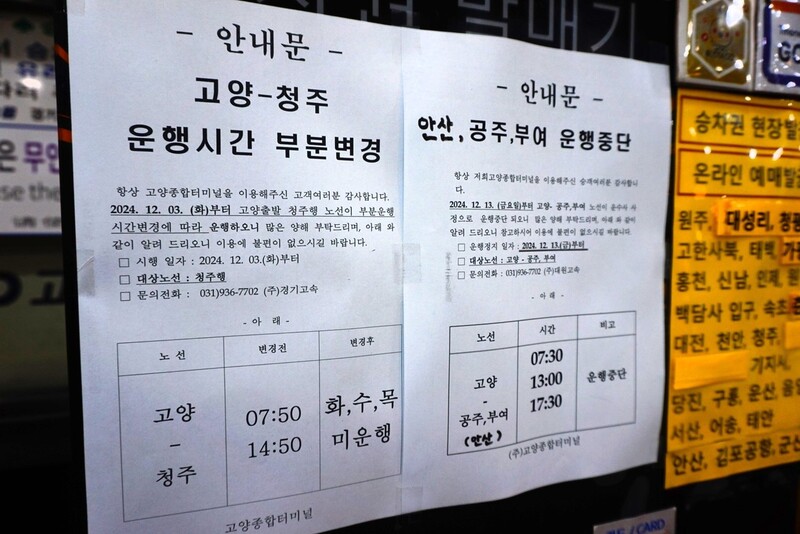 - 안내문 -
고양-청주
운행시간 부분변경
항상 고양종합터미널을 이용해주신 고객여러분 감사합니다.
2024. 12. 03. (화)부터 고양출발 청주행 노선이 부분운행
시간변경에 따라 운행하오니 많은 양해 부탁드리며, 아래 와
같이 알려 드리오니 이용에 불편이 없으시길 바랍니다.
□ 시행 일자 : 2024. 12. 03.(화)부터
□ 대상노선 : 청주행
□ 문의전화 : 031)936-7702 (주)경기고속
- 아 래 -
노 선 변경전 변경후
고양 - 청주
07:50
14:50
화,수,목
미운행
고양종합터미널
- 안내문 -
안산, 공주,부여 운행중단
항상 저희고양종합터미널을 이용해주신 승객여러분 감사합니
다.
2024. 12. 13. (금요일)부터 고양- 공주,부여 노선이 운수사 사
정으로 운행중단 되오니 많은 양해 부탁드리며, 아래 와 같이
알려 드리오니 참고하시어 이용에 불편이 없으시길 바랍니다.
□ 운행정지 일자 : 2024. 12. 13.(금)부터
□ 대상노선 : 고양 - 공주, 부여
□ 문의전화 : 031)936-7702 (주)대원고속
- 아래 -
노선 시간 비고
고양
-
공주,부여
(안산)
07:30
13:00
17:30
운행중단
(주)고양종합터미널
승차권 현장발
온라인 예매발
원주, 대성리, 청평
고한사북, 태백,
홍천, 신남, 인제, 원
백담사 입구, 속초
대전, 천안, 청주,
기지시,
당진, 구룡, 운산, 음암
서산, 어송, 태안
안산, 김포공항, 군산
/ CARD